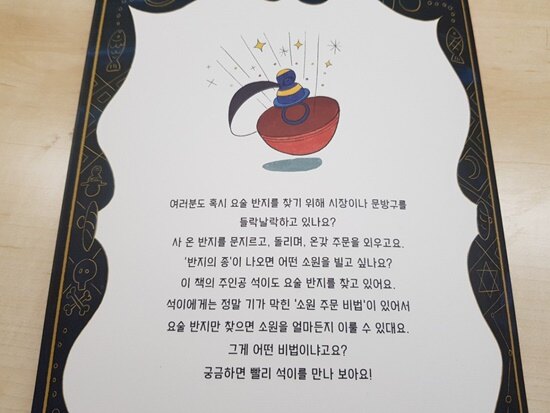 여러분도 혹시 요술 반지를 찾기 위해 시장이나 문방구를
들락날락하고 있나요?
사 온 반지를 문지르고, 돌리며, 온갖 주문을 외우고요.
'반지의 종'이 나오면 어떤 소원을 빌고 싶나요?
이 책의 주인공 석이도 요술 반지를 찾고 있어요.
석이에게는 정말 기가 막힌 '소원 주문 비법'이 있어서
요술 반지만 찾으면 소원을 얼마든지 이룰 수 있대요.
그게 어떤 비법이냐고요?
궁금하면 빨리 석이를 만나 보아요!